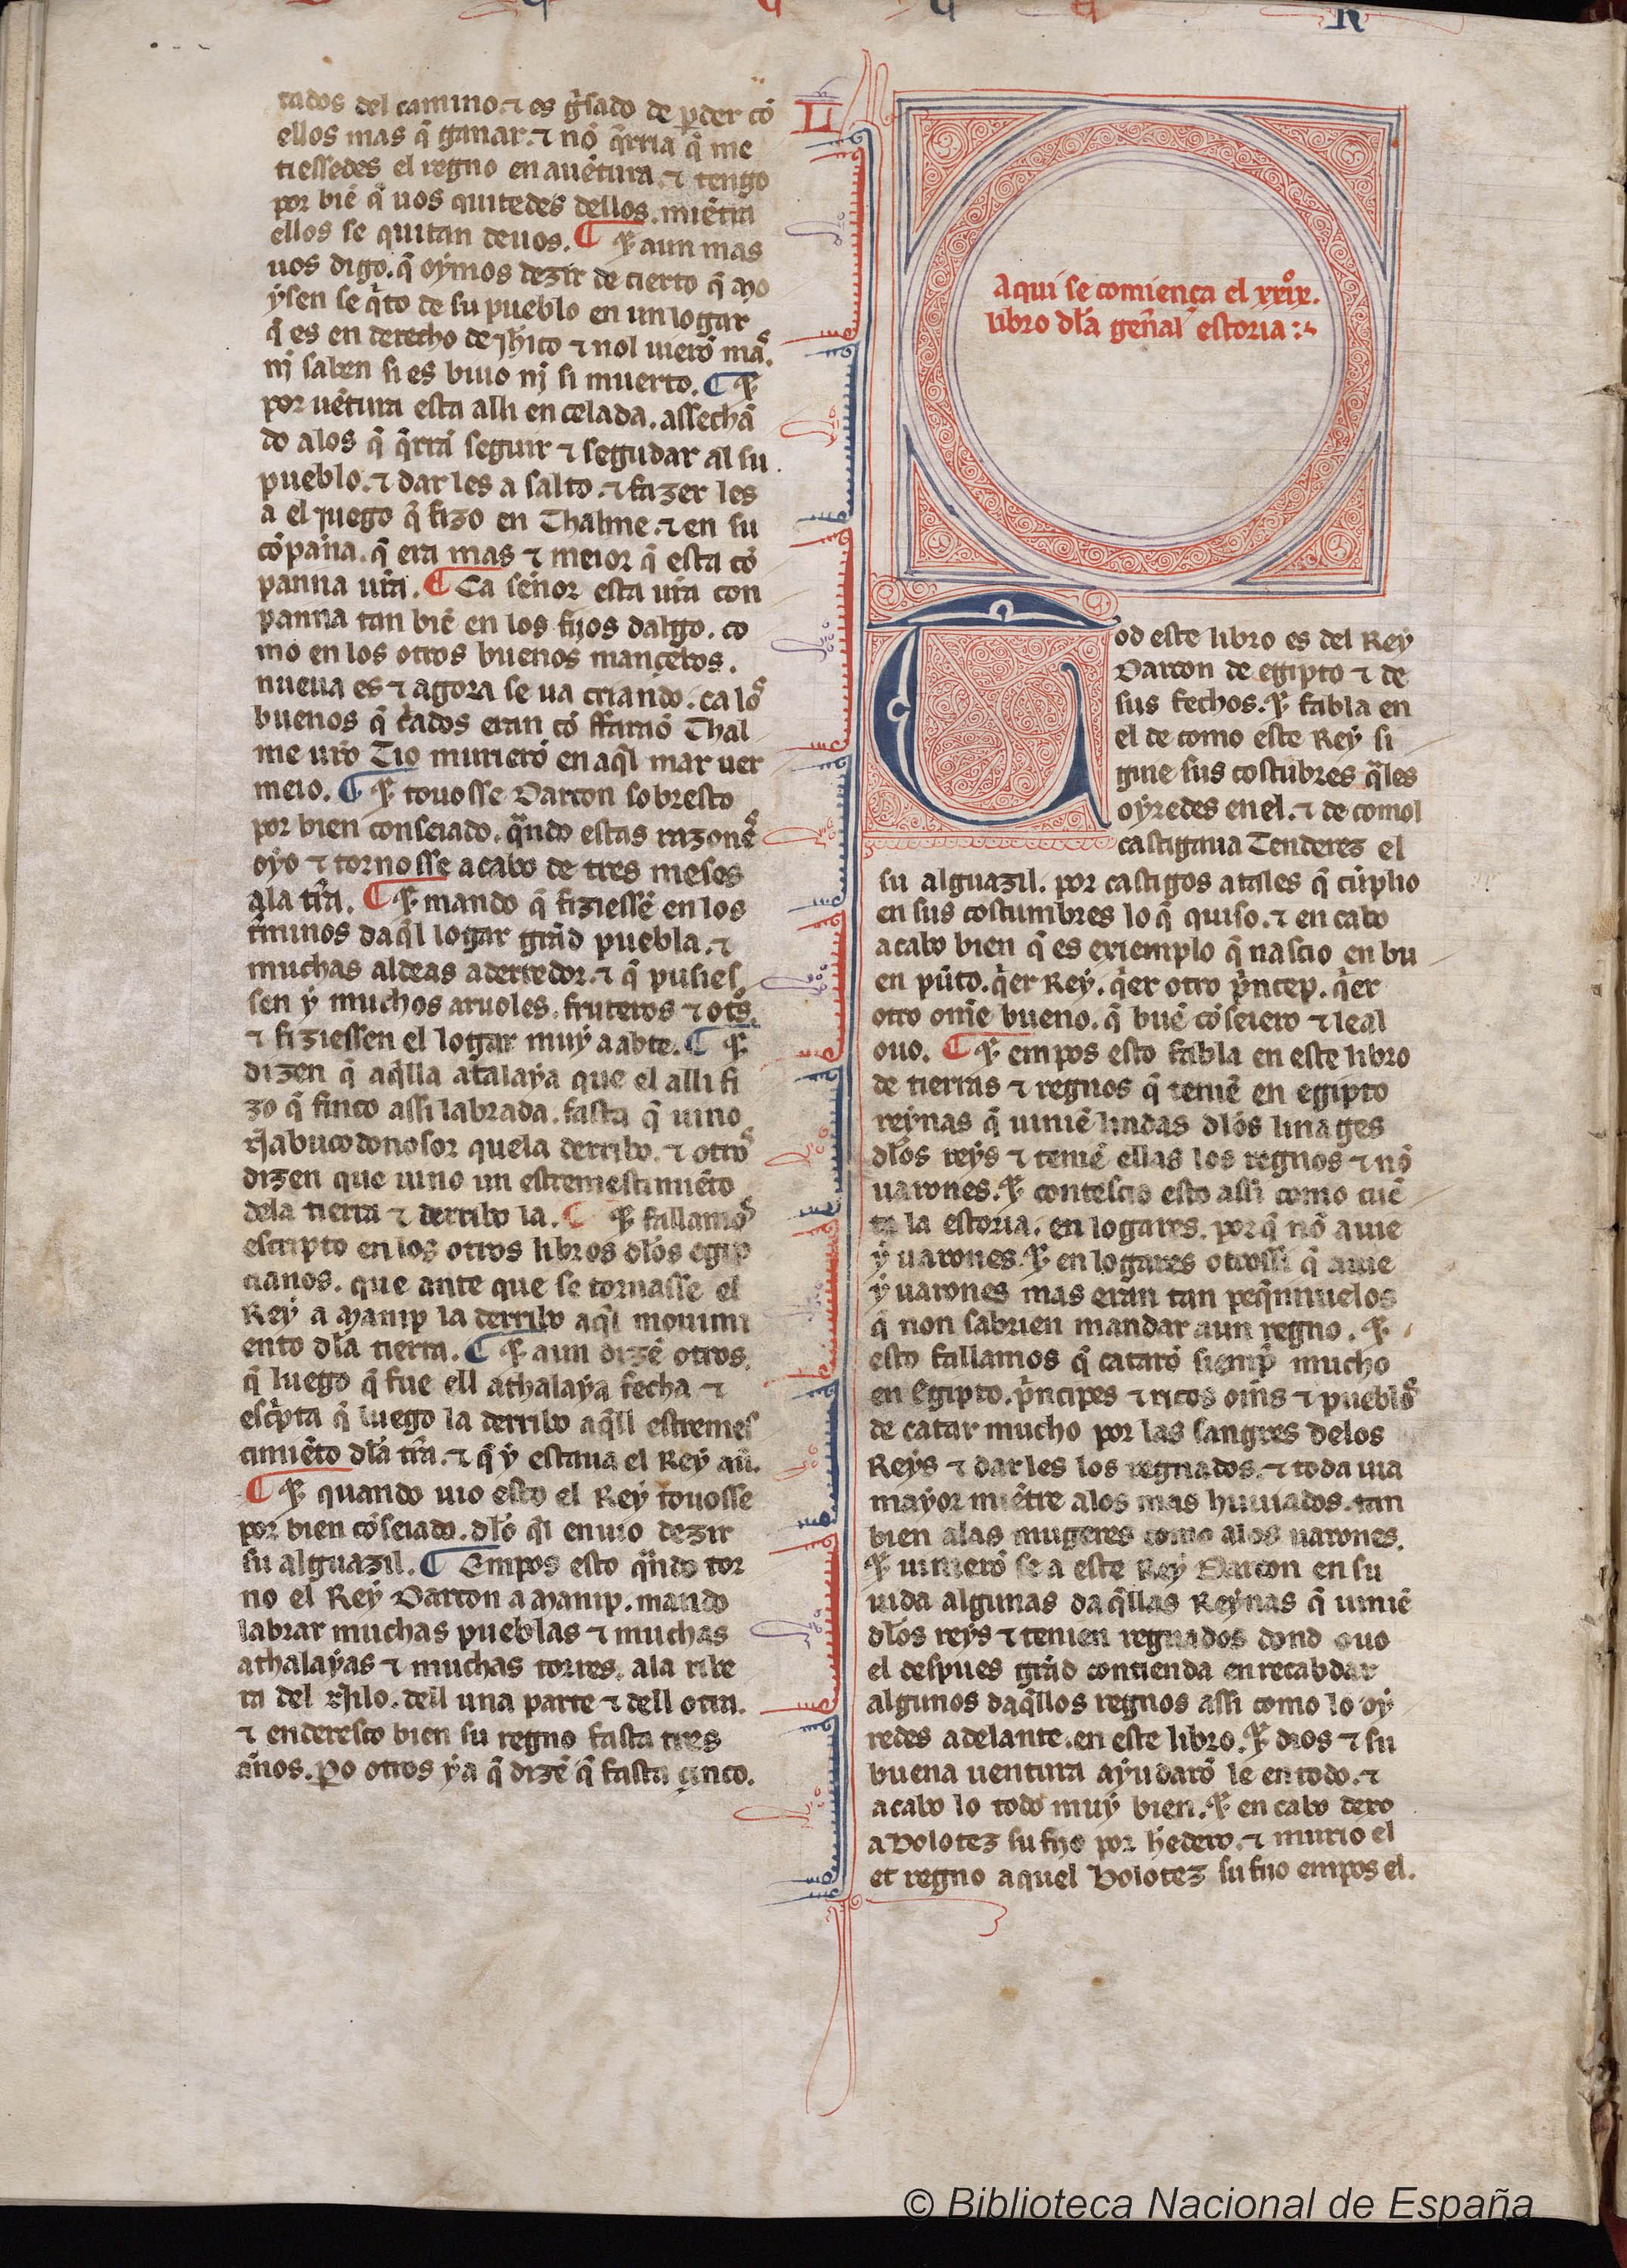 tados del camino. ⁊ es g̃sado de p̱der cõ
ellos mas q̃ ganar. ⁊ nõ q̃rria q̃ me
tiessedes el regno en auẽtura. ⁊ tengo
por biẽ q̃ uos quitedes dellos. miẽtra
ellos se quitan deuos. ¶ ⁊ aun mas
uos digo. q̃ oymos dezir de cierto q̃ mo
ysen se q̃to de su pueblo en un logar
q̃ es en derecho de jh̃ico ⁊ nol uierõ mas.
nj saben si es biuo nj si muerto. ¶ ⁊
por uẽtura esta alli en celada. assechã
do alos q̃ q̃rrã seguir ⁊ segudar al su
pueblo. ⁊ dar les a salto. ⁊ fazer les
a el juego q̃ fizo en Thalme. ⁊ en su
cõpaña. q̃ era mas ⁊ meior q̃ esta cõ
panna ur̃a. ¶ Ca señor esta ur̃a con
panna tan biẽ en los fijos dalgo. co
mo en los otros buenos mançebos.
nueua es ⁊ agora se ua criando. ca los
buenos q̃ c̃ados eran cõ ffaraõ Thal
me ur̃o Tio murierõ en aq̃l mar uer
meio. ¶ ⁊ touosse Darcon sobresto
por bien conseiado. q̃ndo estas razones
oyo ⁊ tornosse acabo de tres meses
ala tr̃a. ¶ ⁊ mando q̃ fiziessẽ en los
t̃minos daq̃l logar grãd puebla. ⁊
muchas aldeas aderredor. ⁊ q̃ pusies
sen y muchos aruoles. fruteros ⁊ otr̃s.
⁊ fiziessen el logar muy aabte. ¶ ⁊
dizen q̃ aq̃lla atalaya que el alli fi
zo q̃ finco assi labrada. fasta q̃ uino
Nabucodonosor quela derribo. ⁊ otros
dizen que uino un estremescimiẽto
dela tierra ⁊ derribo la. ¶ ⁊ fallamos
escripto en los otros libros dl̃os egip
cianos. que ante que se tornasse el
Rey a Manip la derribo aq̃l mouimi
ento dl̃a tierra. ¶ ⁊ aun dizẽ otros.
q̃ luego q̃ fue ell athalaya fecha ⁊
esc̃pta q̃ luego la derribo aq̃ll estremes
cimiẽto dl̃a tr̃a. ⁊ q̃ y estaua el Rey aũ.
¶ ⁊ quando uio esto el Rey touosse
por bien cõseiado. dl̃o q̃l enuio dezir
su alguazil. ¶ Empos esto q̃ndo tor
no el Rey Darcon a Manip. mando
labrar muchas pueblas ⁊ muchas
athalayas ⁊ muchas torres. ala ribe
ra del Nilo. dell una parte ⁊ dell otra.
⁊ enderesco bien su regno fasta tres
años. P̱o otros ya q̃ dizẽ q̃ fasta çinco.
LI
Aqui se comiença el xxix.º
libro dl̃a geñal estoria:
Tod este libro es del Rey
Darcon de egipto ⁊ de
sus fechos. ⁊ fabla en
el de como este Rey si
guie sus costũbres q̃les
oyredes en el. ⁊ de comol
castigaua Tenderez el
su alguazil. por castigos atales q̃ cũplio
en sus costumbres lo q̃ quiso. ⁊ en cabo
acabo bien q̃ es exiemplo q̃ nascio en bu
en pũto. q̃er Rey. q̃er otro p̃ncep. q̃er
otro om̃e bueno. q̃ buẽ cõseiero ⁊ leal
ouo. ¶ ⁊ empos esto fabla en este libro
de tierras ⁊ regnos q̃ teniẽ en egipto
reynas q̃ uiniẽ lindas dl̃os linages
dl̃os reys ⁊ teniẽ ellas los regnos ⁊ nõ
uarones. ⁊ contescio esto assi como cuẽ
ta la estoria. en logares. porq̃ nõ auie
y uarones. ⁊ en logares otrossi q̃ auie
y uarones mas eran tan peq̃nnuelos
q̃ non sabrien mandar aun regno. ⁊
esto fallamos q̃ catarõ siemp̃ mucho
en Egipto. p̃ncipes ⁊ ricos om̃s ⁊ pueblos
de catar mucho por las sangres delos
Reys ⁊ darles los regnados. ⁊ toda uia
mayor miẽtre alos mas huuiados. tan
bien alas mugeres como alos uarones.
⁊ uinierõ se a este Rey Darcon en su
uida algunas daq̃llas Reynas q̃ uiniẽ
dl̃os reys ⁊ tenien regnados dond ouo
el despues grãd contienda en recabdar
algunos daq̃llos regnos assi como lo oy
redes adelante. en este libro. ⁊ dios ⁊ su
buena uentura ayudarõ le en todo. ⁊
acabo lo todo muy bien. ⁊ en cabo dexo
a Bolotez su fijo por hedero. ⁊ murio el
et regno aquel Bolotez su fijo empos el.
© Biblioteca Nacional de España